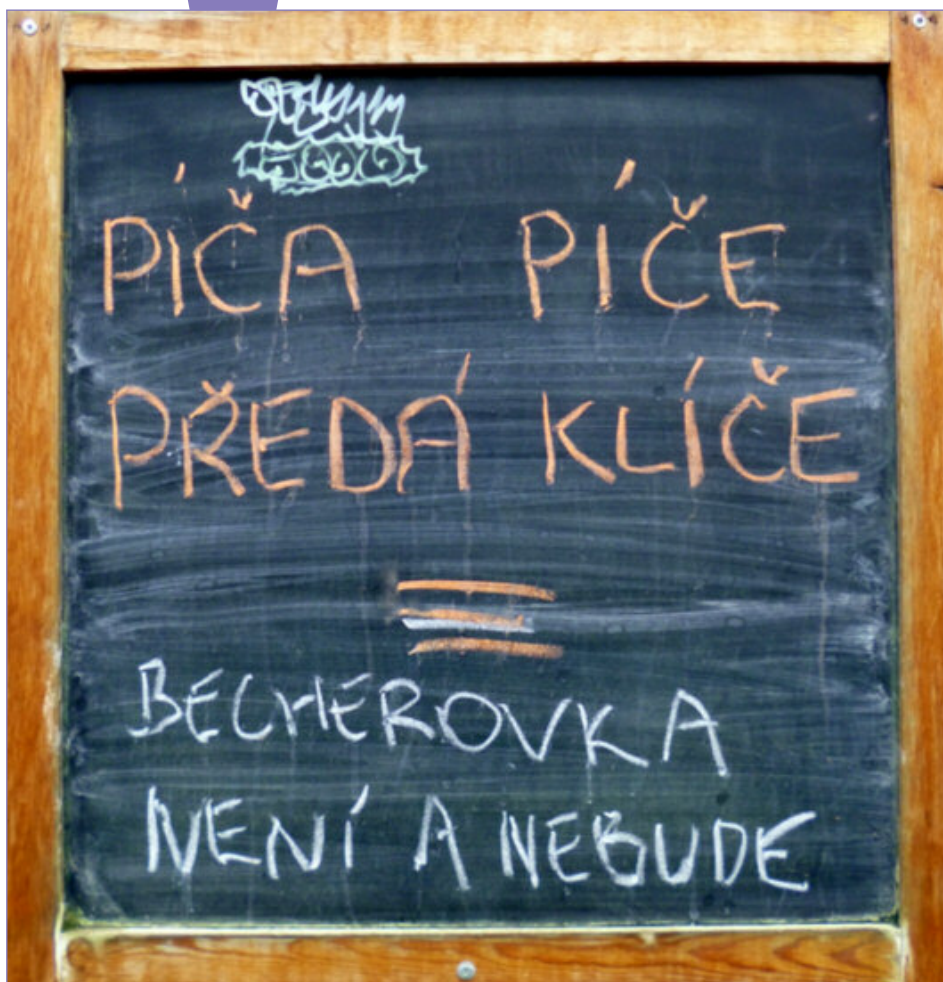 PÍČA PÍČE
PŘEDÁ KLÍČE
BECHEROVKA
NENÍ A NEBUDE